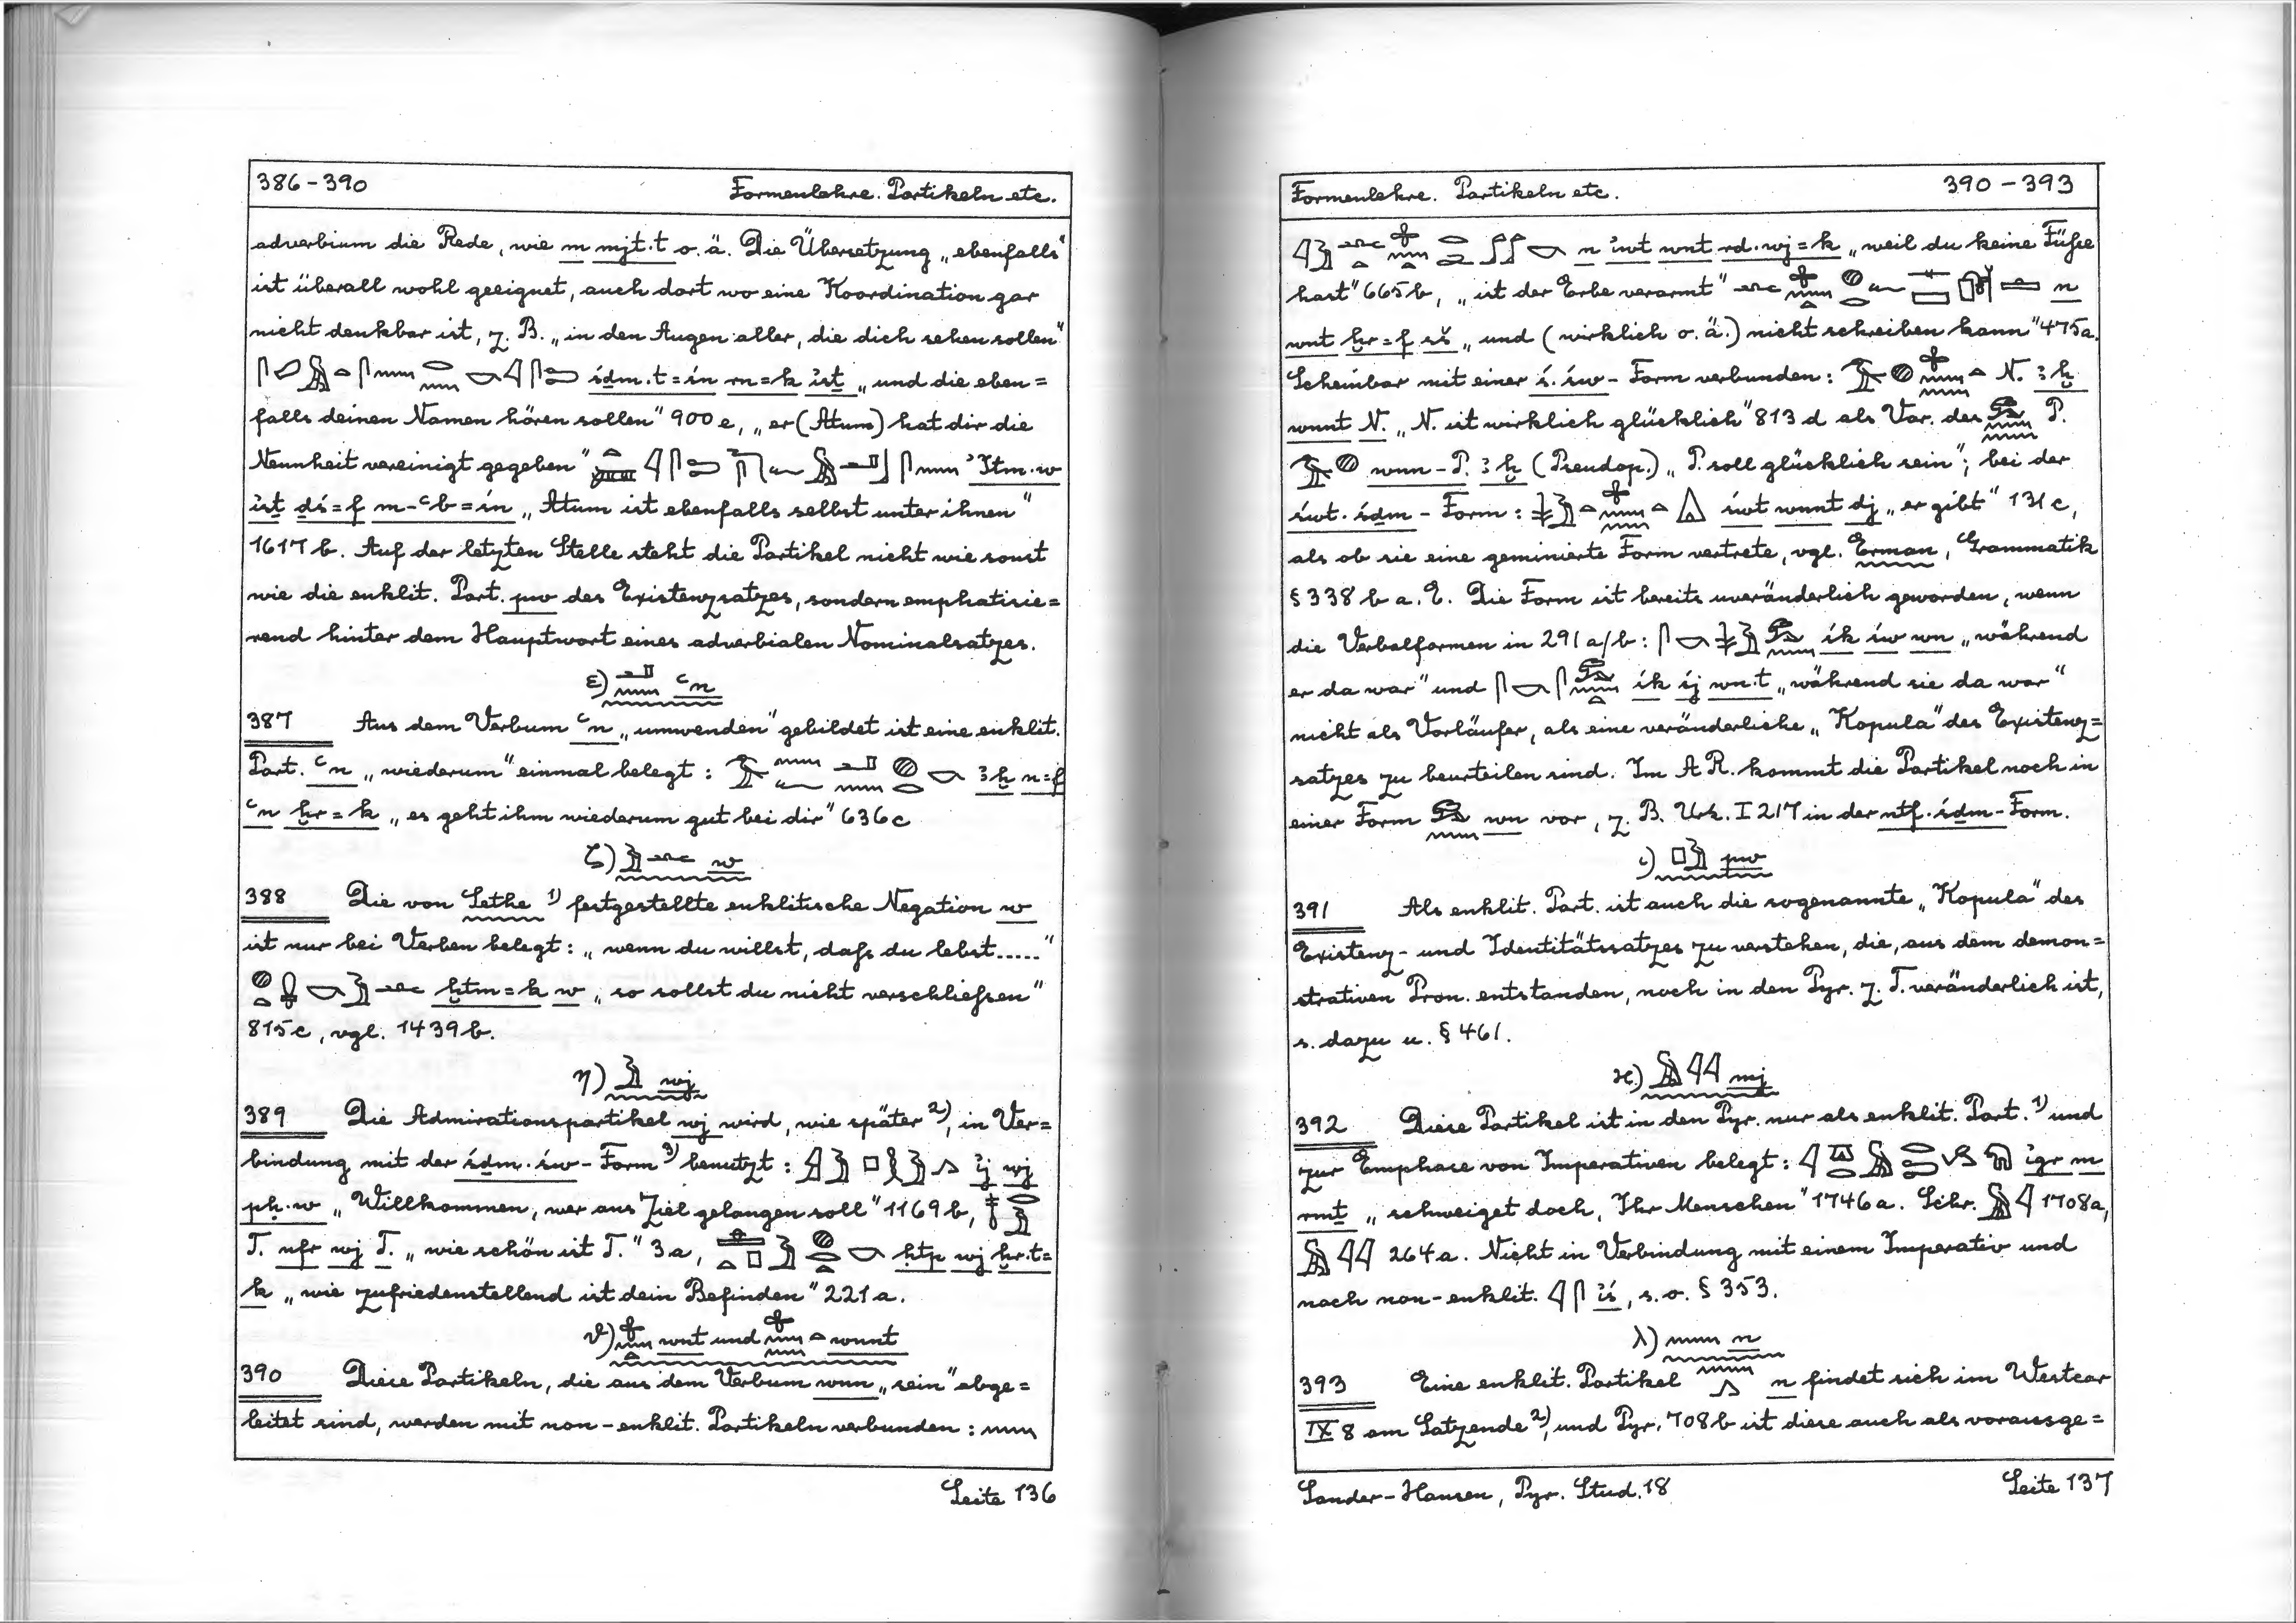 386-390 Formenlehre. Partikeln etc.
adverbium die Rede, wie m mjt.t o. ä. Die Übersetzung „ebenfalls“
ist überall wohl geeignet, auch dort wo eine Koordination gar
nicht denkbar ist, z. B. „in den Augen aller, die dich sehen sollen“
śḏm.t=śn rn=k ἰśṯ „und die eben=
falls deinen Namen hören sollen“ 900e, „er (Atum) hat dir die
Neunheit vereinigt gegeben“ ꞽItm.w
ἰśṯ ḏś=f m-ꜥb=śn „Atum ist ebenfalls selbst unter ihnen“
1617b. Auf der letzten Stelle steht die Partikel nicht wie sonst
wie die enklit. Part. pw des Existenzsatzes, sondern emphatisie=
rend hinter dem Hauptwort eines adverbialen Nominalsatzes.
ε) ꜥn
387 Aus dem Verbum ꜥn „umwenden“ gebildet ist eine enklit.
Part. ꜥn „wiederum“ einmal belegt: ꜣḫ n=f
ꜥn ḫr=k „es geht ihm wiederum gut bei dir“ 636c
ζ) w
388 Die von Sethe 1) festgestellte enklitische Negation w
ist nur bei Verben belegt: „wenn du willst, daß du lebst.....“
ḫtm=k w „so sollst du nicht verschließen“
815c, vgl. 1439b.
η) wj
389 Die Admirationspartikel wj wird, wie später 2), in Ver=
bindung mit der śḏm.św-Form 3) benutzt: ἰj wj
pḥ.w „Willkommen, wer ans Ziel gelangen soll“ 1169b,
T. nfr wj T. „wie schön ist T.“ 3a, ḥtp wj ḫr.t=
k „wie zufriedenstellend ist dein Befinden“ 221a.
ϑ) wnt und wnnt
390 Diese Partikeln, die aus dem Verbum wnn „sein“ abge=
leitet sind, werden mit non-enklit. Partikeln verbunden:
Seite 136
Formenlehre. Partikeln etc. 390-393
n ἰwt wnt rd.wj=k „weil du keine Füße
hast“ 665b, „ist der Erbe verarmt“ n
wnt ḫr=f sš „und (wirklich o. ä.) nicht schreiben kann“ 475a.
Scheinbar mit einer ś.św-Form verbunden: N. ꜣḫ
wnnt N. „N. ist wirklich glücklich“ 813d als Var. des P.
wnn-P. ꜣḫ (Pseudop.) „P. soll glücklich sein“; bei der
śwt.śḏm-Form: śwt wnnt dj „er gibt“ 131c,
als ob sie eine geminierte Form vertrete, vgl. Erman, Grammatik
§ 338b a. E. Die Form ist bereits unveränderlich geworden, wenn
die Verbalformen in 291a/b: śk św wn „während
er da war“ und śk śj wn.t „während sie da war“
nicht als Vorläufer, als eine veränderliche „Kopula“ des Existenz=
satzes zu beurteilen sind. Im A R. kommt die Partikel noch in
einer Form wn vor, z. B. Urk. I 217 in der ntf.śḏm-Form.
ι) pw
391 Als enklit. Part. ist auch die sogenannte „Kopula“ des
Existenz- und Identitätssatzes zu verstehen, die, aus dem demon=
strativen Pron. entstanden, noch in den Pyr. z. T. veränderlich ist,
s. dazu u. § 461.
ϰ) mj
392 Diese Partikel ist in den Pyr. nur als enklit. Part. 1) und
zur Emphase von Imperativen belegt: ἰgr m
rmṯ „schweiget doch, Ihr Menschen“ 1746a. Schr. 1708a,
264a. Nicht in Verbindung mit einem Imperativ und
nach non-enklit. ἰś, s. o. § 353.
λ) n
393 Eine enklit. Partikel n findet sich im Westcar
IX 8 am Satzende 2), und Pyr. 708b ist diese auch als vorausge=
Sander-Hansen, Pyr. Stud. 18 Seite 137